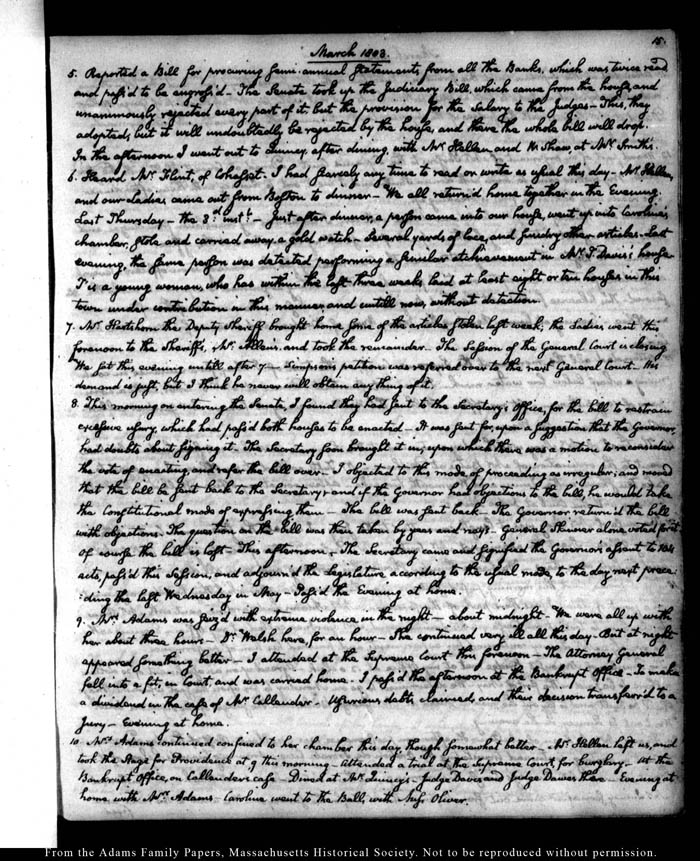 15.
March 1803.
5. Reported a Bill for procuring semi-annual statements from all the Banks, which was twice read
and pass'd to be engross'd — The Senate took up the Judiciary Bill, which came from the house, and
unanimously rejected every part of it, but the provision for the Salary to the Judges — This, they
adopted, but it will undoubtedly be rejected by the house, and there the whole bill will drop.
In the afternoon I went out to Quincy, after dining, with Mr. Hellen and W. Shaw, at Mr. Smith's.
6. Heard Mr. Flint, of Cohasset. I had scarcely any time to read or write as usual this day — Mr. Hellen,
and our Ladies came out from Boston to dinner — We all return'd home together in the Evening.
Last Thursday — the 3d. inst. — Just after dinner, a person came into our house, went up into Caroline's
chamber, stole and carried away, a gold watch — several yards of lace, and sundry other articles. Last
evening, the same person was detected performing a similar atchievement in Mr. Davis's house
T'is a young woman, who has within the last three weeks laid at least eight or ten houses in this
town under contribution in this manner, and untill now, without detection.
7. Mr. Hartshorn the Deputy Sheriff brought home some of the articles stolen last week; the Ladies went this
forenoon to the Sheriff's, Mr. Allen's, and took the remainder. The Session of the General Court is closing
We sat this evening untill after 7 — Simpson's petition was referred over to the next General Court. His
demand is just, but I think he never will obtain any thing of it.
8. This morning on entering the Senate, I found they had sent to the Secretary's Office, for the bill to restrain
excessive usury, which had pass'd both houses to be enacted — It was sent for, upon a suggestion that the Governor,
had doubts about signing it. The Secretary soon brought it in; upon which there was a motion to reconsider
the vote of enacting, and refer the bill over — I objected to this mode of proceeding as irregular; and moved
that the bill be sent back to the Secretary; and if the Governor had objections to the bill, he would take
the Constitutional mode of expressing them — The bill was sent back. The Governor return'd the bill
with objections. The question on the bill was then taken by yeas and nays — General Skinner alone voted for it
Of course the bill is lost. This afternoon, The Secretary came and signified the Governor's assent to
acts, pass'd this Session, and adjourn'd the Legislature according to the usual mode, to the day next prece-
:ding the last Wednesday in May — Pass'd the Evening at home.
9. Mrs. Adams was seiz'd with extreme violence in the night — about midnight. We were all up with
her about three hours — Dr. Welsh here, for an hour — She continued very ill all this day. But at night
appeared something better — I attended at the Supreme Court this forenoon — The Attorney General
fell into a fit, in Court, and was carried home. I pass'd the afternoon at the Bankrupt Office — To make
a dividend in the case of Mr. Callender. Usurious debts claimed, and their decision transferr'd to a
Jury — Evening at home.
10. Mrs. Adams continued confined to her chamber this day, though somewhat better — Mr. Hellen left us, and
took the Stage for Providence at 9 this morning. Attended a trial at the Supreme Court, for burglary — At the
Bankrupt Office, on Callender's case — Dined at Mr. Quincy's — Judge Davis and Judge Dawes there. Evening at
home with Mrs. Adams. Caroline went to the Ball, with Miss Oliver.
From the Adams Family Papers, Massachusetts Historical Society. Not to be reproduced without permission.